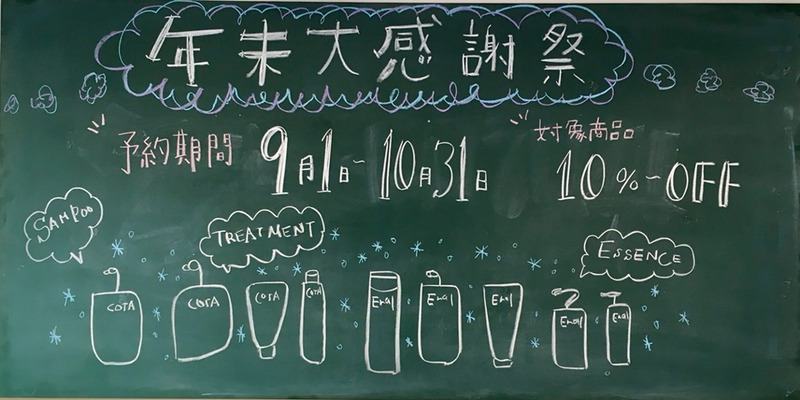 年末大感謝祭
予約期間 9月1日~10月31日
対象商品
10%~OFF
SAMPOO
TREATMENT
ESSENCE
COTA COTA COTA COTA Eral Eral Eral Eral Eral